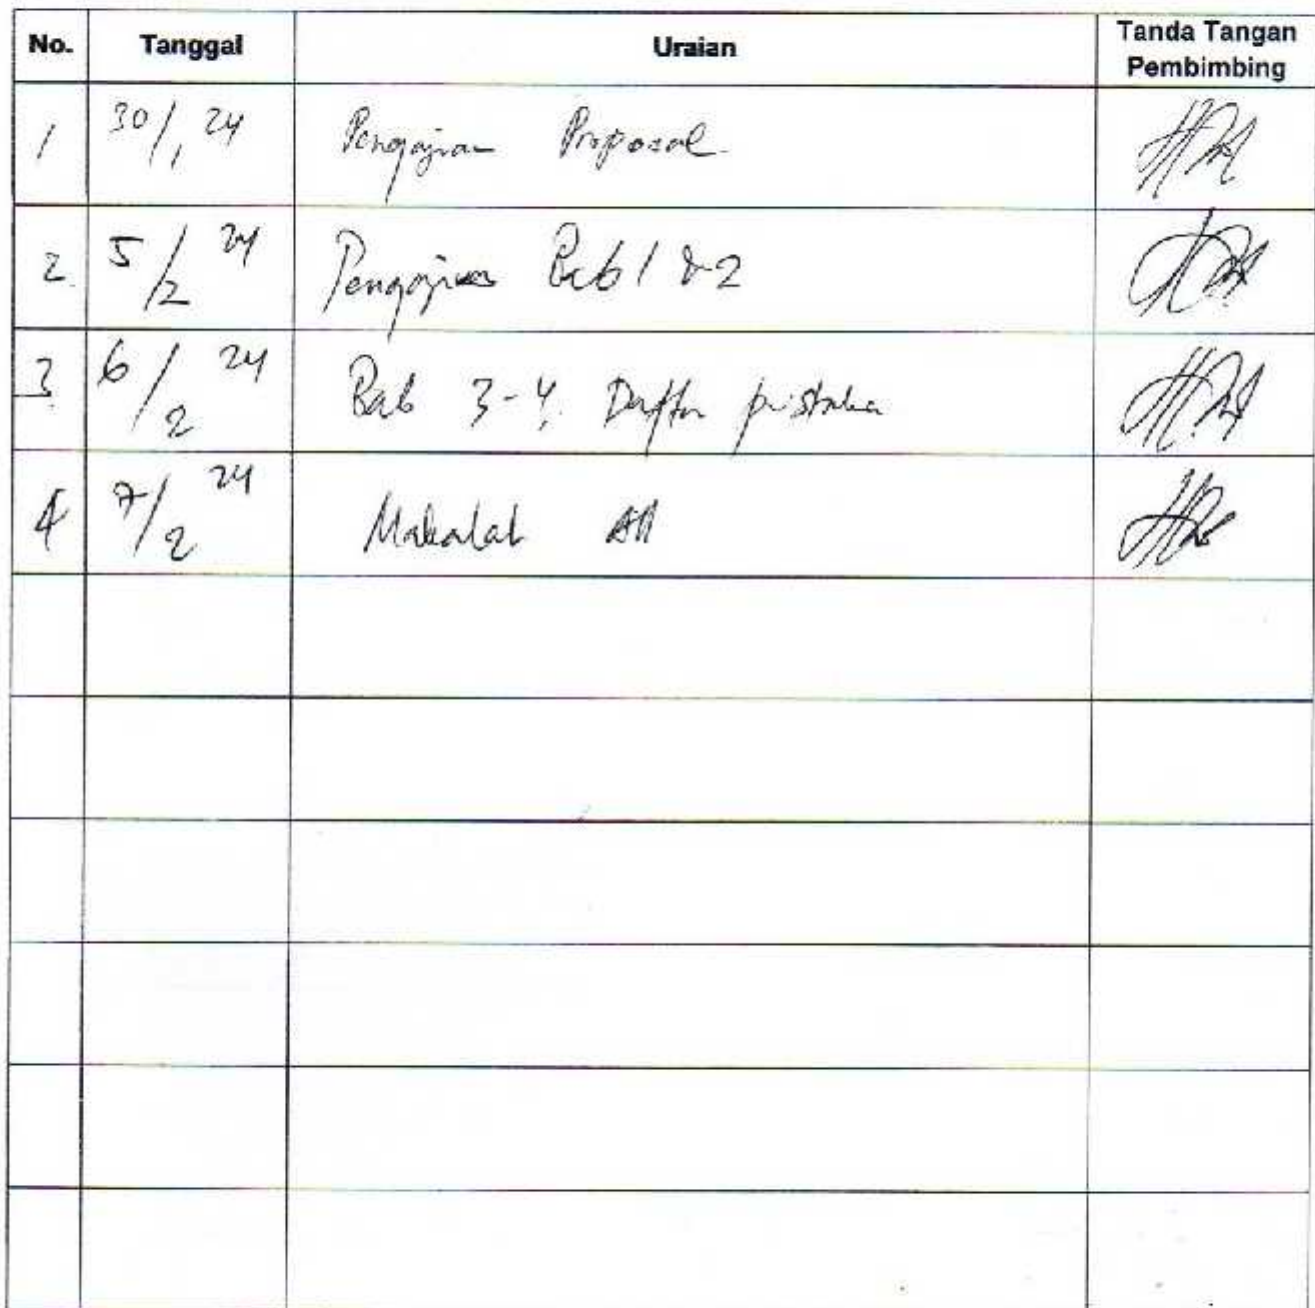 No. Tanggal Uraian Tanda Tangan
Pembimbing
1 30/1 24 Pengajian Proposal
2 5/2 24 Pengajian Bab 1 & 2
3 6/2 24 Bab 3-4. Daftar pustaka
4 7/2 24 Makalah All